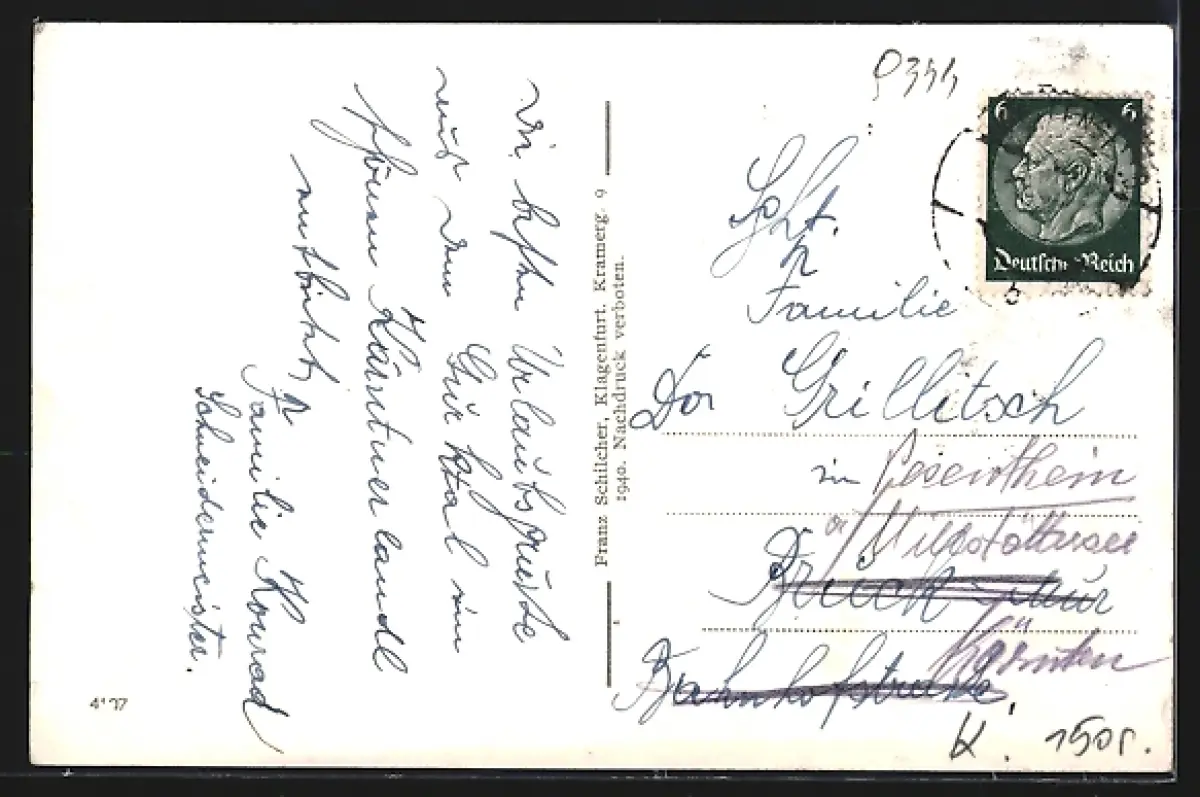 Die besten Urlaubsgrüsse
aus dem Gürktal im
schönen Kärntnerlandl
entbietet
Familie Konrad
Schneidermeister.
4107
Franz Schilcher, Klagenfurt, Kramerg. 9
1940. Nachdruck verboten.
6 6
Deutsches Reich
Familie
Grillitsch
in
Millstättersee
Bruck Mur
Kärnten
Bahnhofstraße,